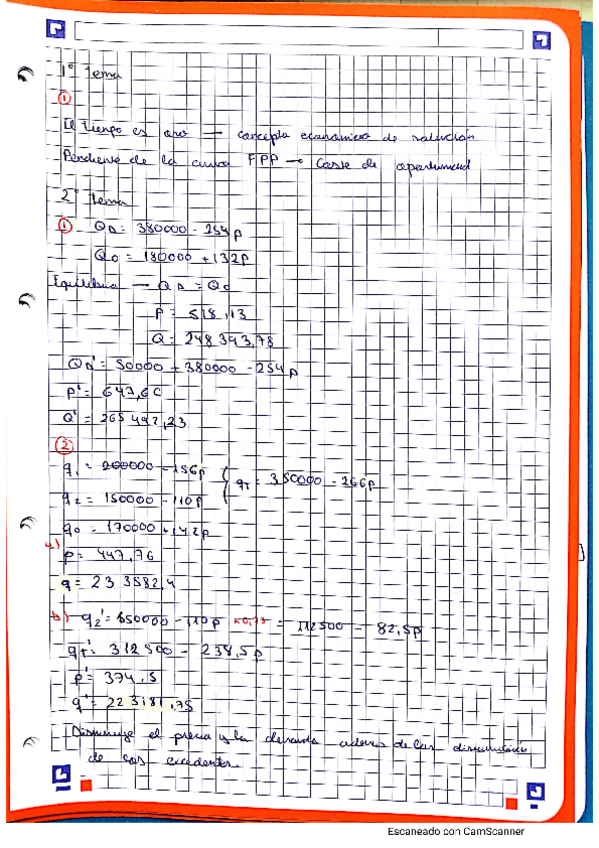 1º Tema
①
El tiempo es oro → concepto económico de
Pendiente de la curva FPP → Coste de oportunidad
2º Tema
① QD = 380000 - 254p
QO = 180000 + 132p
Equilibrio → QD = QO
P = 518,13
Q = 248 393,78
QD' = 50000 + 380000 - 254p
p' = 647,66
Q' = 265 492,23
②
q1 = 200000 - 156p
qT = 350000 - 266p
q2 = 150000 - 110p
qo = 170000 + 142p
a)
p = 447,76
q = 23 3582,4
b) q2' = 150000 - 110p ×0,75 = 112500 - 82,5p
qT' = 312 500 - 238,5p
p' = 374,5
q' = 223181,75
Disminuye el precio y la demanda además de la disminución
de los excedentes.
Escaneado con CamScanner